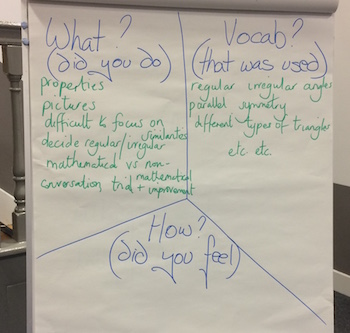 What?
(did you do)
properties
pictures
difficult to focus on
similarities
decide regular/irregular
mathematical vs non-
mathematical
conversation trial + improvement
Vocab?
(that was used)
regular irregular angles
parallel symmetry
different types of triangles
etc. etc.
How?
(did you feel)